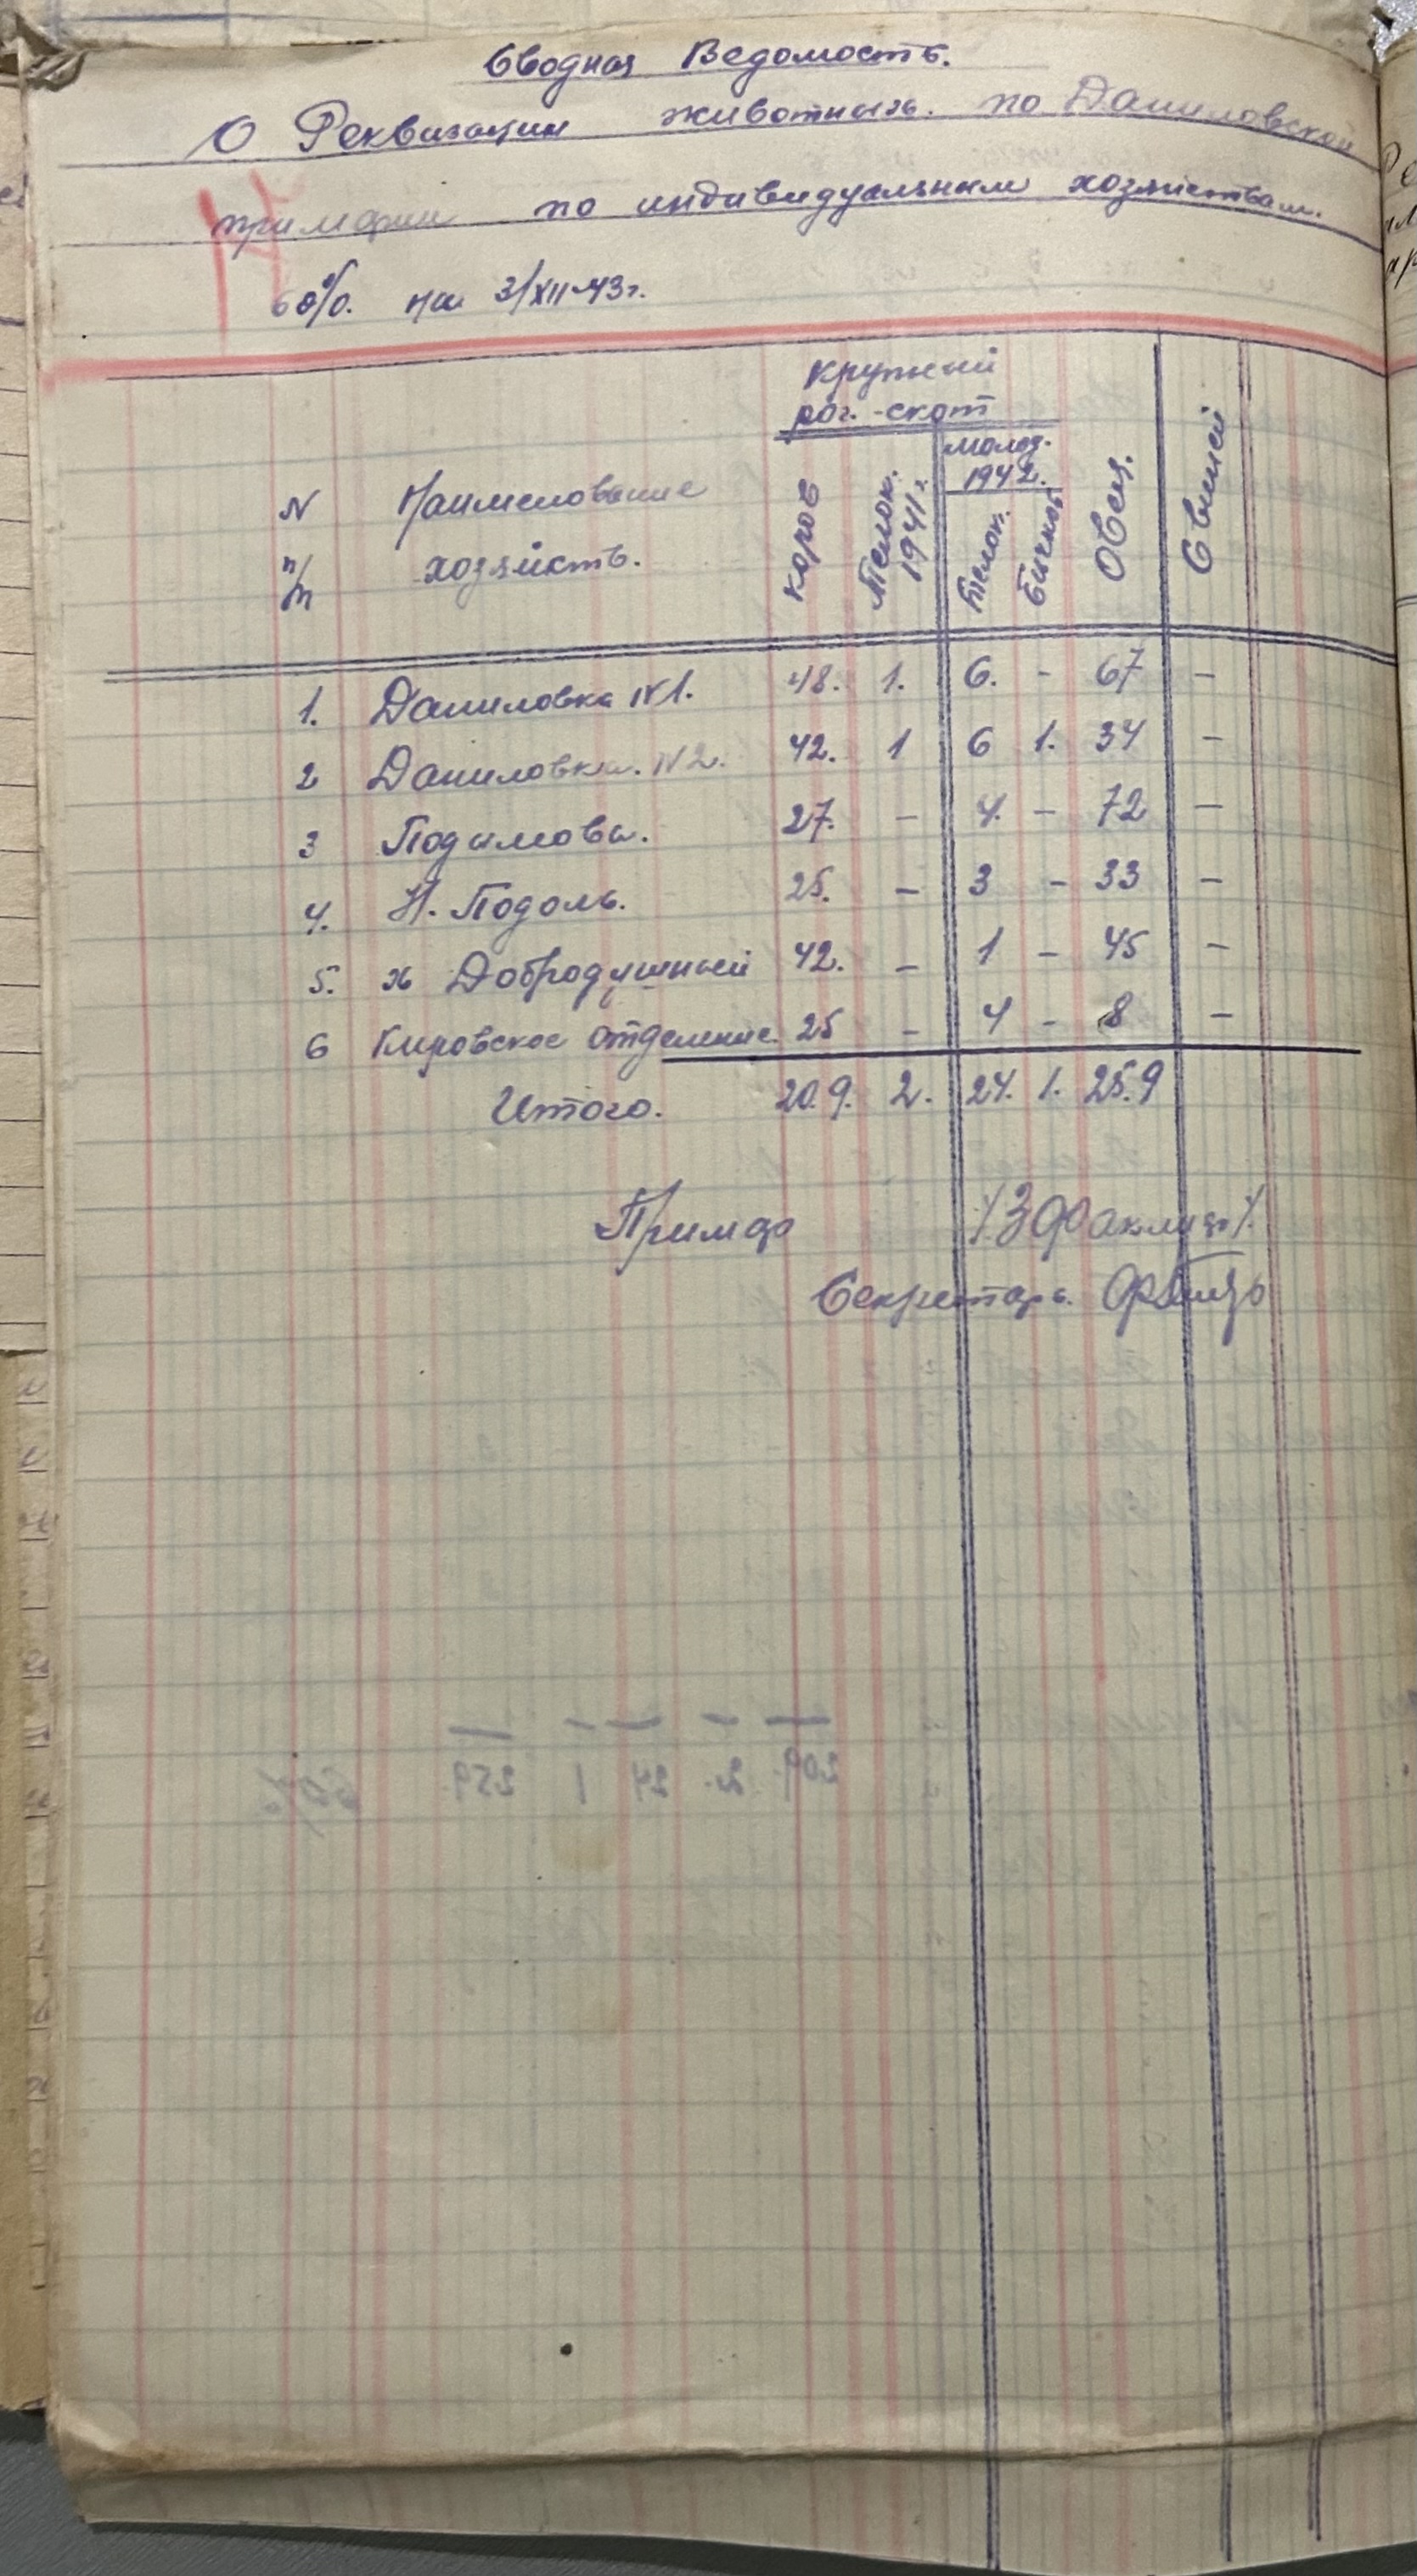 Сводная Ведомость.
О Реквизации животных. по Даниловской
примэрии по индивидуальным хозяйствам.
60%. на 3/XII-43г.
N п/п Наименование хозяйств. крупный рог. -скот коров Телок. 1941 г. молод. 1942. Телок. Бычков Овец. Свиней
1. Даниловка N1. 48. 1. 6. - 67 -
2 Даниловка. N2. 42. 1 6 1. 34 -
3 Подымово. 27. - 4. - 72 -
4. Н. Подоль. 25. - 3 - 33 -
5. х Добродушный 42. - 1 - 45 -
6 Кировское отделение. 25 - 4 - 8 -
Итого. 20.9. 2. 24. 1. 25.9
Примар
Секретарь.
209. 2. 24 1 259. 60%